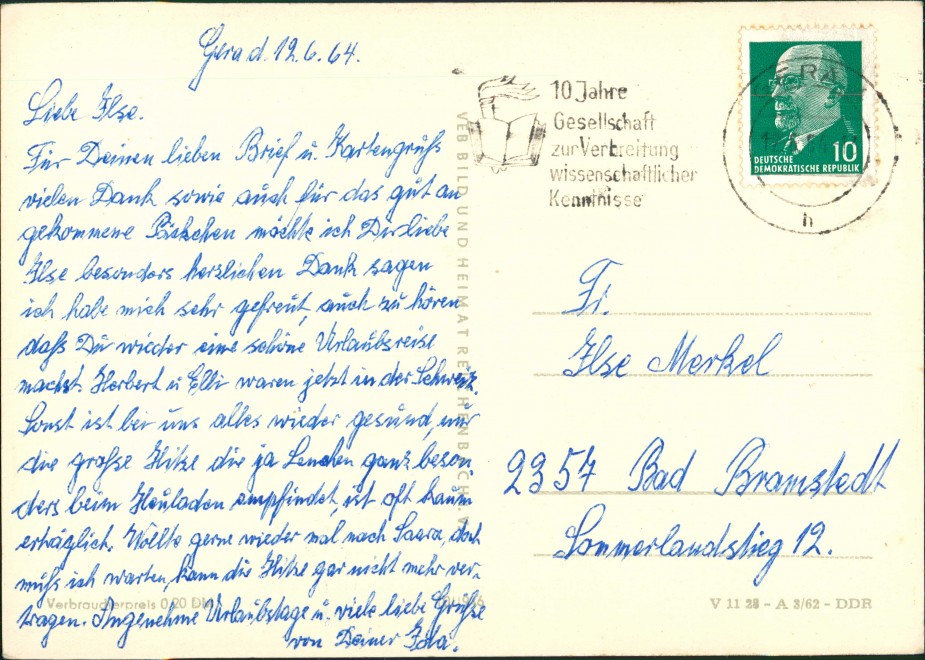 Gera d. 12.6.64.
Liebe Ilse.
Für Deinen lieben Brief u. Kartengruß
vielen Dank sowie auch für das gut an
gekommene Päckchen möchte ich Dir liebe
Ilse besonders herzlichen Dank sagen
ich habe mich sehr gefreut, auch zu hören
daß Du wieder eine schöne Urlaubsreise
machst. Herbert u Elli waren jetzt in der Schweiz.
Sonst ist bei uns alles wieder gesund, nur
die große Hitze die ja Lenchen ganz beson
ders beim Heuladen empfindet, ist oft kaum
erträglich. Wollte gerne wieder mal nach Saara, doch
muß ich warten, kann die Hitze gar nicht mehr ver-
tragen. Angenehme Urlaubstage u. viele liebe Grüße
von Deiner Ida.
Verbraucherpreis 0,20 DM
VEB BILD UND HEIMAT REICHENBACH
10 Jahre
Gesellschaft
zur Verbreitung
wissenschaftlicher
Kenntnisse
GERA
h
DEUTSCHE
DEMOKRATISCHE REPUBLIK
10
Fr.
Ilse Merkel
2357 Bad Bramstedt
Sommerlandstieg 12.
V 11 28 - A 3/62 - DDR